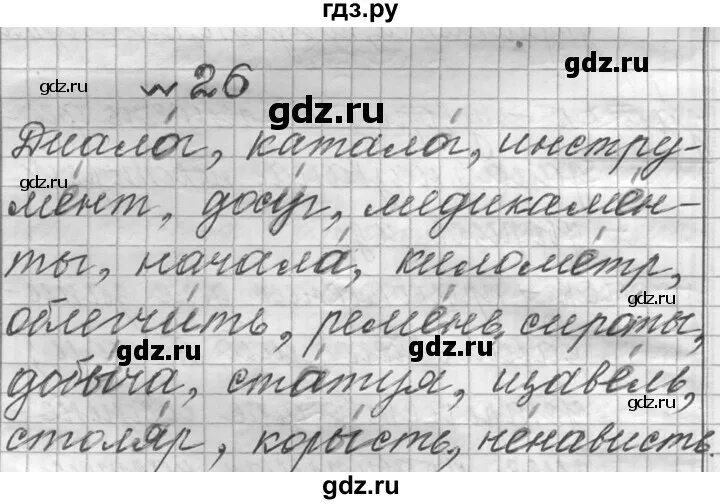 гдз.ру
gdz.ru
gdz.ru
№ 26
gdz.ru
Диало́г, катало́г, инстру-
ме́нт, досу́г, медикаме́н-
ты, начала́, киломе́тр,
gdz.ru
облегчи́ть, реме́нь, сиро́ты,
gdz.ru
добы́ча, ста́туя, щаве́ль,
gdz.ru
столя́р, коры́сть, не́нависть.
gdz.ru
gdz.ru
gdz.ru